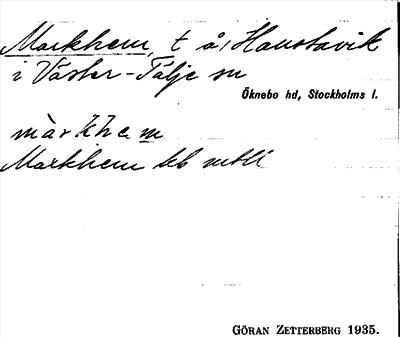 Markhem, t å, Hanstavik
i Väster-Tälje sn
Öknebo hd, Stockholms l.
màrkhem
Markhem
GÖRAN ZETTERBERG 1935.